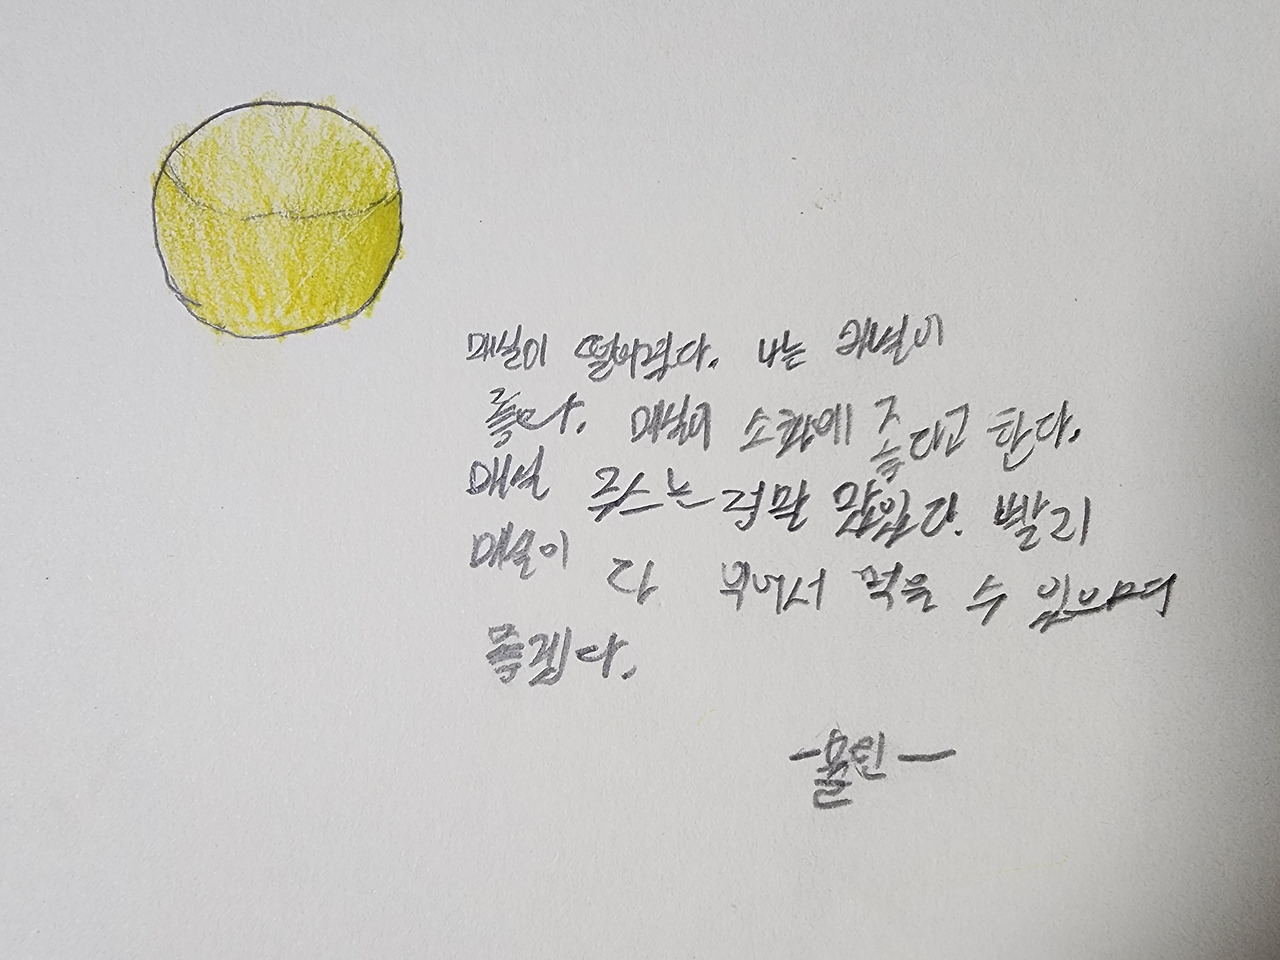 매실이 떨어졌다. 나는 매실이
좋다. 매실이 소화에 좋다고 한다.
매실 쥬스는 정말 맛있다. 빨리
매실이 다 익어서 먹을 수 있으며
좋겠다.
-율린-